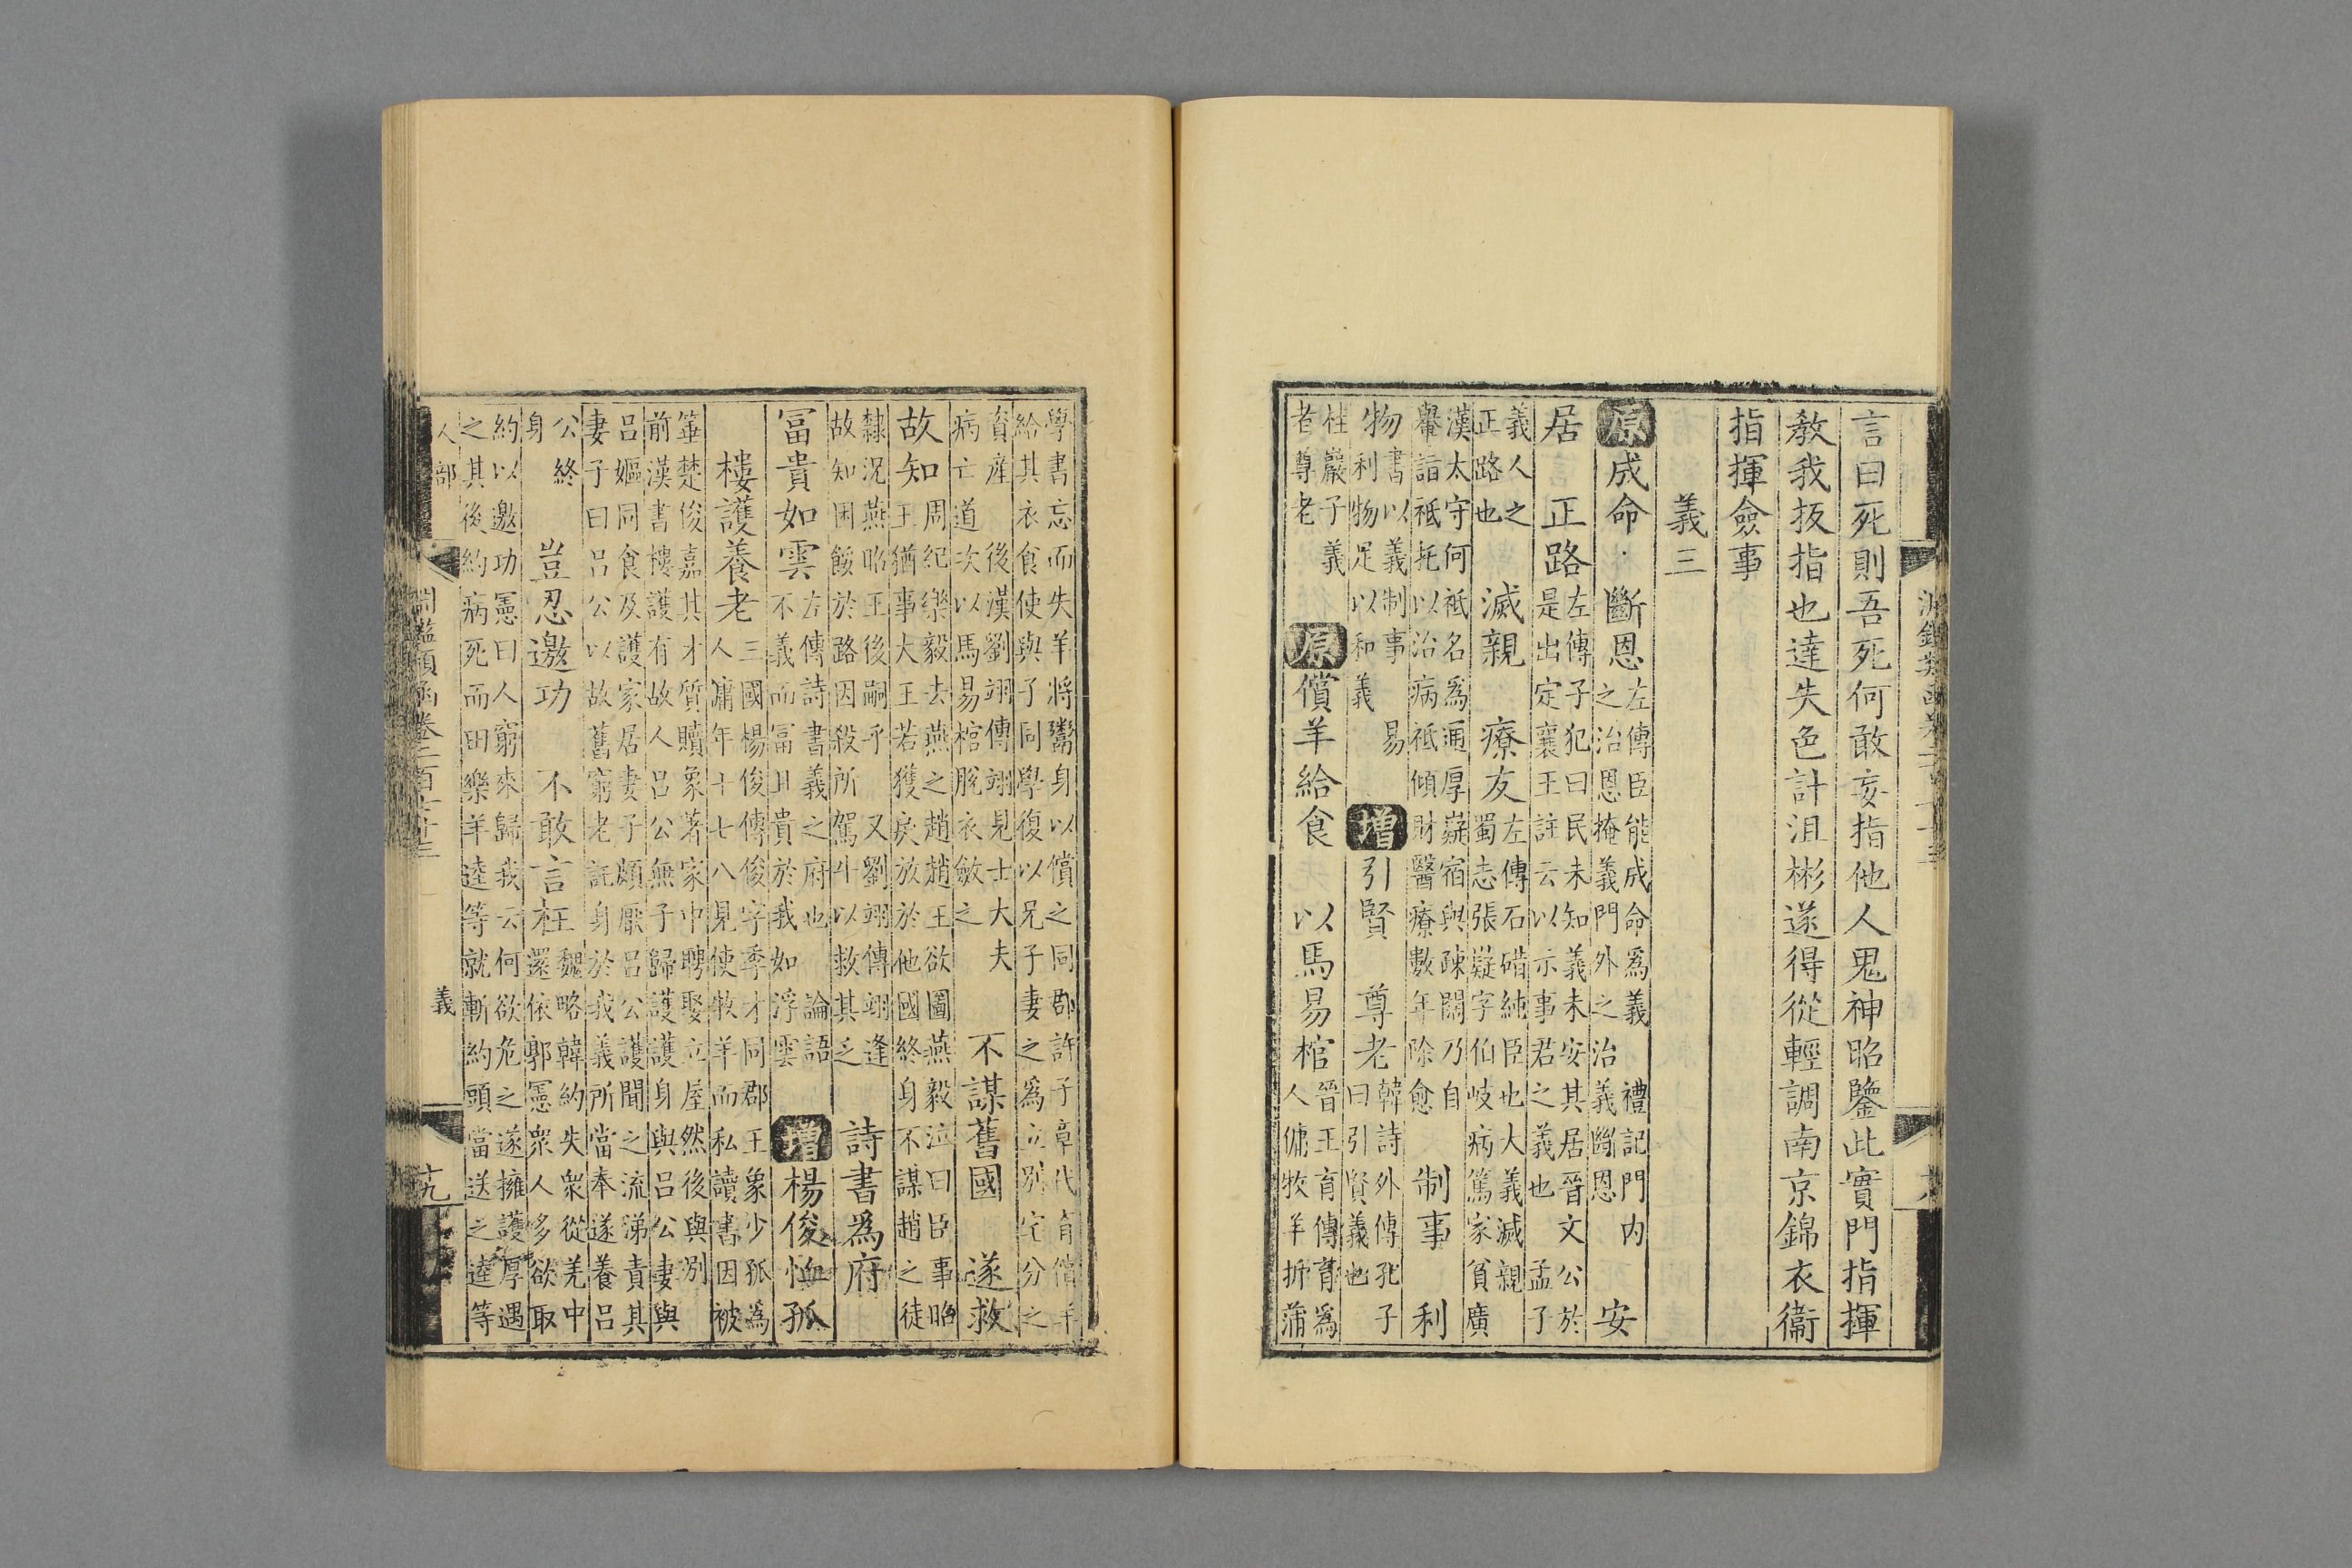 淵鑑類函卷二百
言曰死則吾死何敢妄指他人鬼神昭鑒此實門指揮
教我扳指也達失色計沮彬遂得從輕調南京錦衣衞
指揮僉事
義三
原成命 斷恩 左傳臣能成命爲義 禮記門内
之治恩掩義門外之治義斷恩 安
居 正路 左傳子犯曰民未知義未安其居晉文公於
是出定襄王註云以示事君之義也 孟子
義人之
正路也 滅親 療友 左傳石碏純臣也大義滅親
蜀志張嶷字伯岐病篤家貧廣
漢太守何祗名爲通厚嶷宿與疎闊乃自
轝詣祗托以治病祗傾財醫療數年除愈 制事 利
物 書以義制事 易
利物足以和義 增引賢 尊老 韓詩外傳孔子
曰引賢義也
柱巖子義
者尊老 原償羊給食 以馬易棺 晉王育傳育爲
人傭牧羊折蒲
學書忘而失羊將鬻身以償之同郡許子章代育償羊
給其衣食使與子同學復以兄子妻之爲立別宅分之
資産 後漢劉翊傳翊見士大夫
病亡道次以馬易棺脫衣斂之 不謀舊國 遂救
故知 周紀樂毅去燕之趙趙王欲圖燕毅泣曰臣事昭
王猶事大王若獲戾放於他國終身不謀趙之徒
隸況燕昭王後嗣乎 又劉翊傳翊逢
故知困餒於路因殺所駕牛以救其乏 詩書爲府
冨貴如雲 左傳詩書義之府也 論語
不義而冨且貴於我如浮雲 增楊俊恤孤
樓護養老 三國楊俊傳俊字季才同郡王象少孤爲
人傭年十七八見使牧羊而私讀書因被
箠楚俊嘉其才質贖象著家中聘娶立屋然後與別
前漢書樓護有故人呂公無子歸護護身與呂公妻與
呂嫗同食及護家居妻子頗厭呂公護聞之流涕責其
妻子曰呂公以故舊窮老託身於我義所當奉遂養呂
公終
身 豈忍邀功 不敢言枉 魏略韓約失衆從羌中
還依郭憲衆人多欲取
約以邀功憲曰人窮來歸我云何欲危之遂擁護厚遇
之其後約病死而田樂羊逵等就斬約頭當送之逵等
人部 淵鑑類函卷二百 義 十九